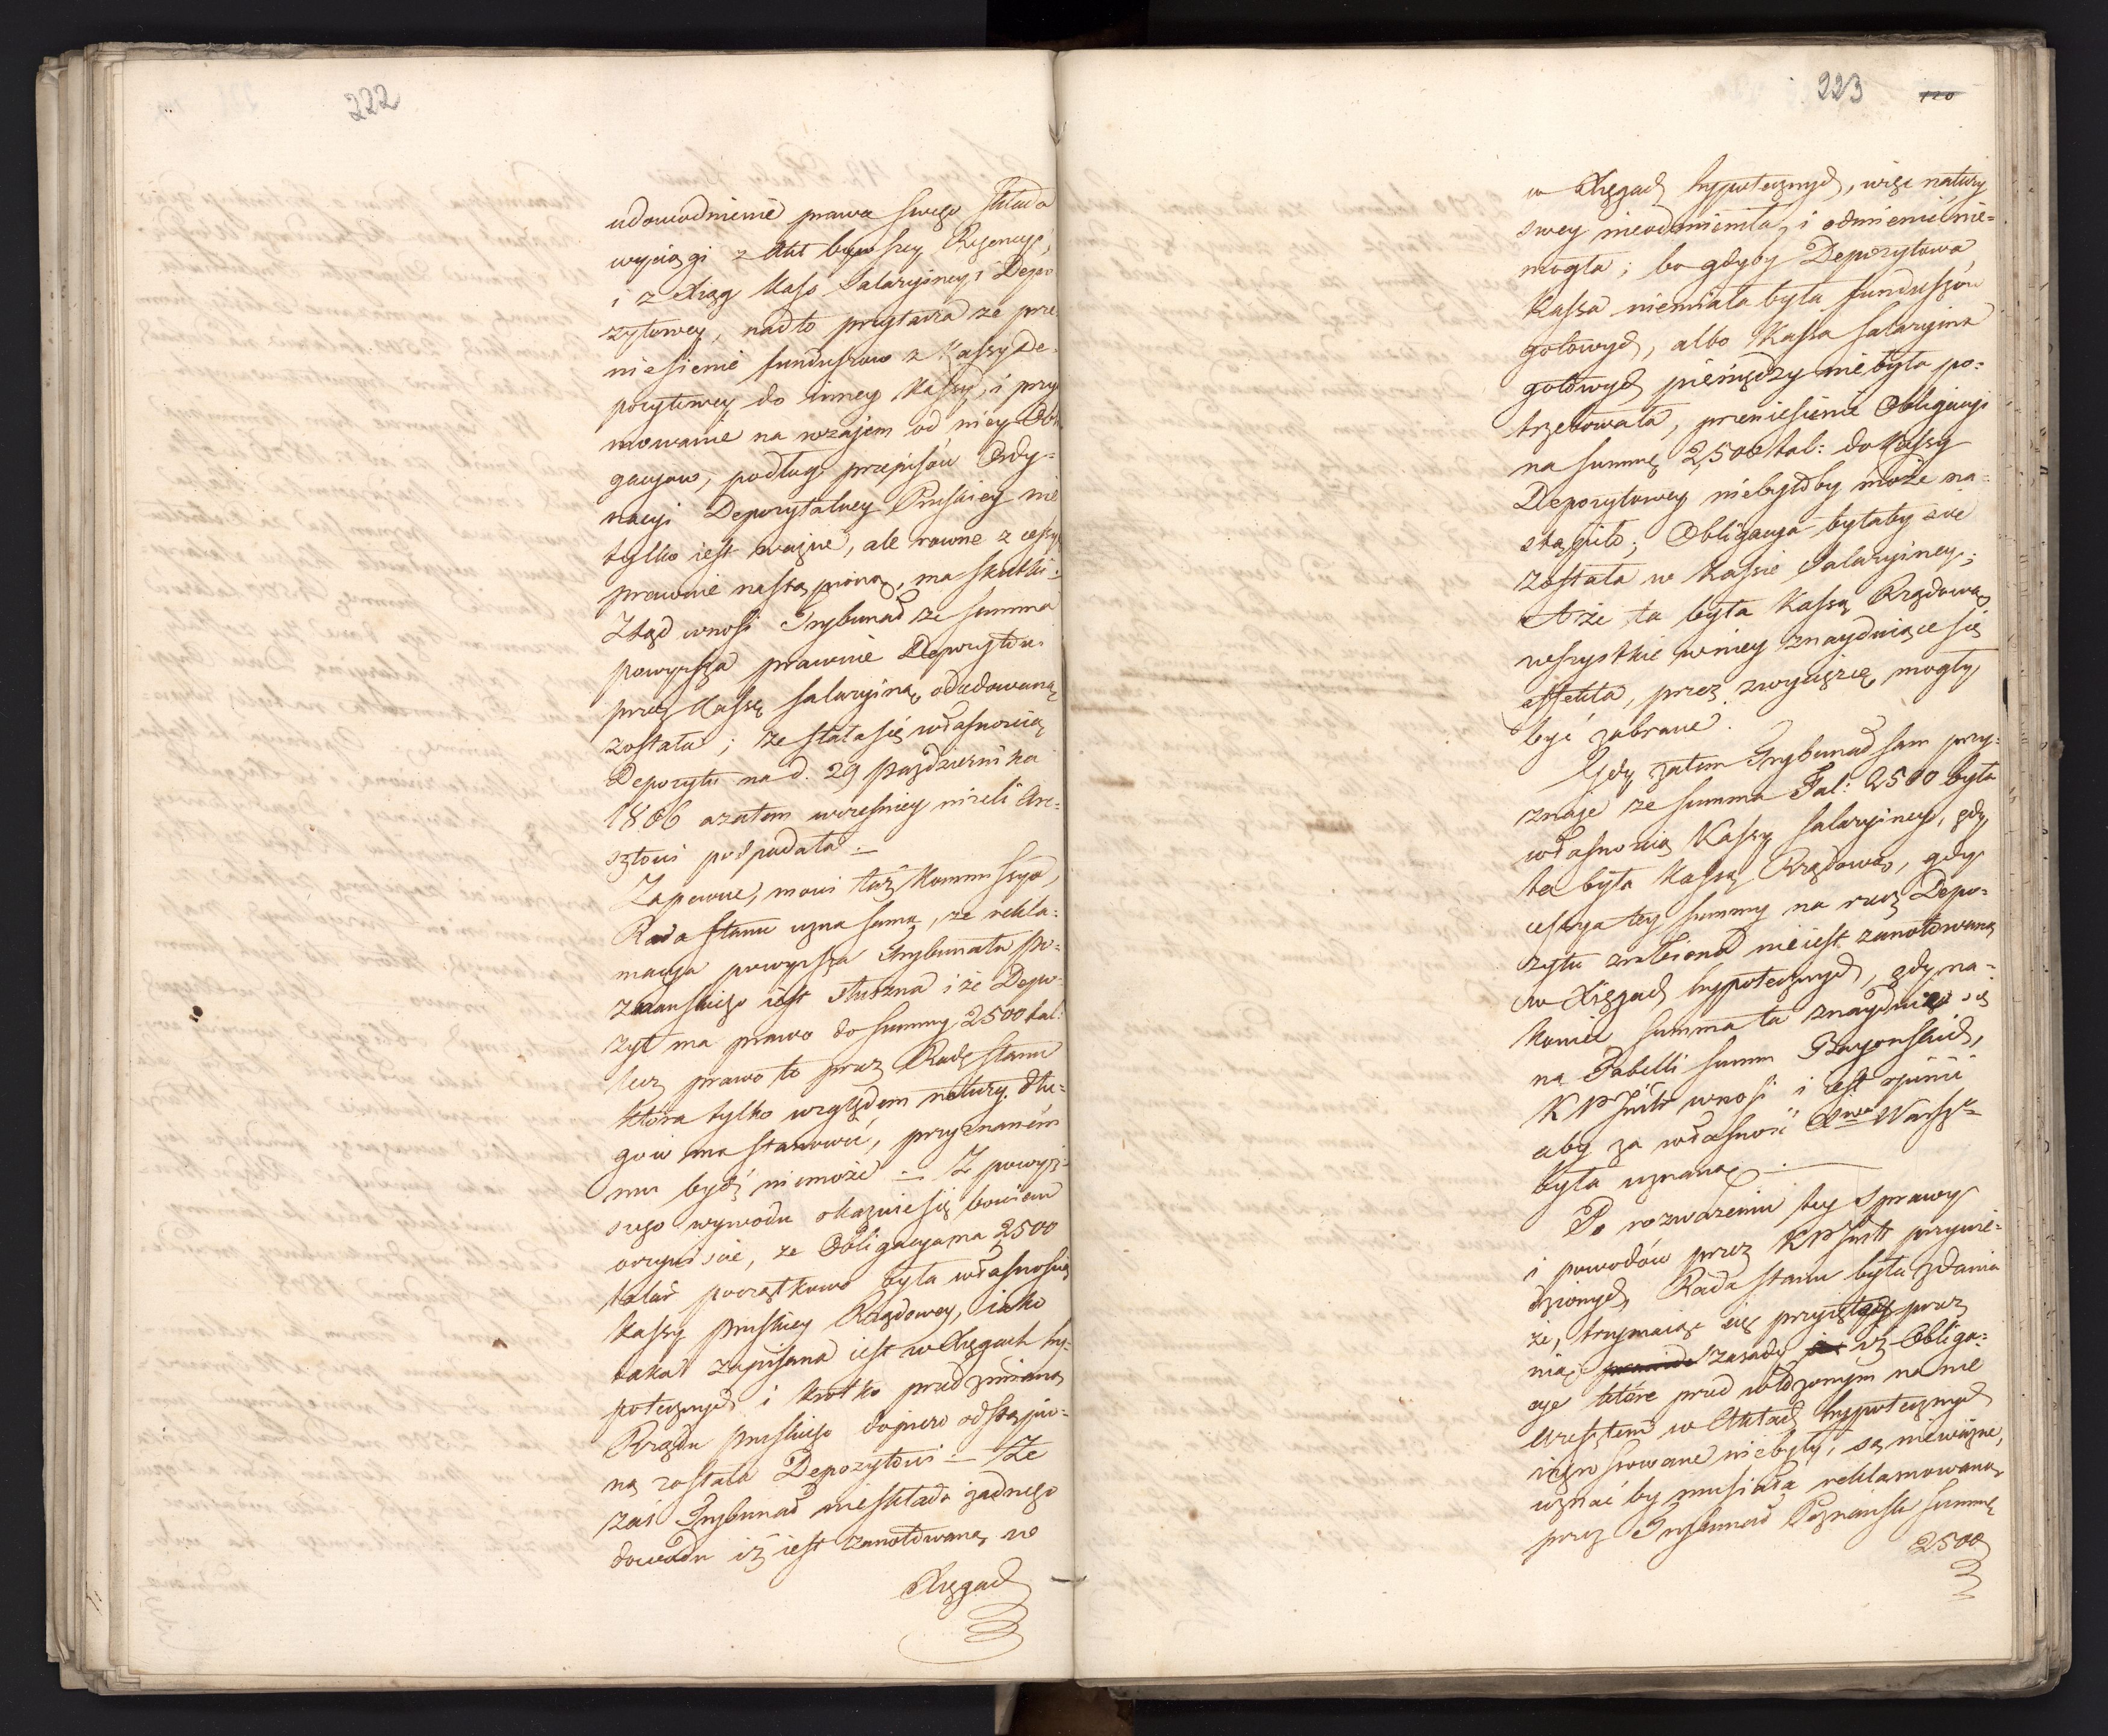 222
udowodnienie prawa swego składa
wyciągi z Akt bywszey Regencyi,
i z Xiąg Kass Salaryiney i Depo
zytowey, nadto przytacza że prze
niesienie funduszow z Kassy De-
pozytowey do inney Kassy, i przy
mowanie na wzajem od niey Obli
gacyow, podług przepisów Ordy-
nacyi Depozytalney Pruskiey nie
tylko iest ważne, ale rowne z cessyą
prawnie nastąpioną, ma skutki.
Ztąd wnosi Trybunał że summa
powyższa prawnie Depozytowi
przez Kassę salaryiną odcedowaną
została; że stała się własnością
Depozytu na d. 29 Pazdziernika
1806 a zatem wcześniey niżeli are-
sztowi podpadała.
Zapewne, mowi taż Kommissya,
Rada Stanu uzna sama, że rekla-
macya powyższa Trybunału Po-
znanskiego iest słuszna i że Depo-
zyt ma prawo do summy 2500 tal:
lecz prawo to przez Radę Stanu
która tylko względem natury dłu-
gow ma stanowić, przyznaném
mu bydź niemoże. Z powyż-
szego wywodu okazuie się bowiem
oczywiście, że Obligacya na 2500
talar początkowo była własnością
Kassy pruskiey Rządowey, iako
takaż zapisana iest w Xięgach hy-
potecznych i krótko przed zmianą
Rządu pruskiego dopiero odstąpio-
ną została Depozytowi. Że
zaś Trybunał nieskłada żadnego
dowodu iż iest zanotowaną w
Xięgach
223 120
w Xięgach hypotecznych, więc natury
swey nieodmieniła, i odmienić nie-
mogła; bo gdyby Depozytowa
Kassa niemiała była funduszów
gotowych, albo Kassa Salaryina
gotowych pieniędzy nie była po-
trzebowała, przeniesienie Obligacyi
na summę 2,500 tal: do Kassy
Depozytowey niebyłoby może na-
stąpiło; Obligacya byłaby się
została w Kassie Salaryiney;
A że ta była Kassą Rządową
wszystkie w niey znayduiące się
effekta, przez zwycięzcę mogły
być zabrane.
Gdy zatem Trybunał sam przy-
znaje że summa Tal: 2500 była
własnością Kassy Salaryiney, gdy
ta była Kassą Rządową, gdy
cessya tey summy na rzecz Depo-
zytu zrobiona nieiest zanotowaną
w Xięgach hypotecznych, gdy na-
koniec summa ta znayduie się
na Tabelli summ Bayonskich,
KPSnik wnosi i iest opinii
aby za własność Xiwa Warszgo
była uznaną.
Po rozważeniu tey sprawy
i powodów przez KPSnik przywie-
dzionych Rada Stanu była zdania
że, trzymaiąc się przyiętey przez
nią zasady iż Obliga-
cye które przed włożonym na nie
aresztem w Aktach hypotecznych
ingrossowane niebyły, są nieważne,
uznać by musiała reklamowaną
przez Trybunał Poznański summę
2500